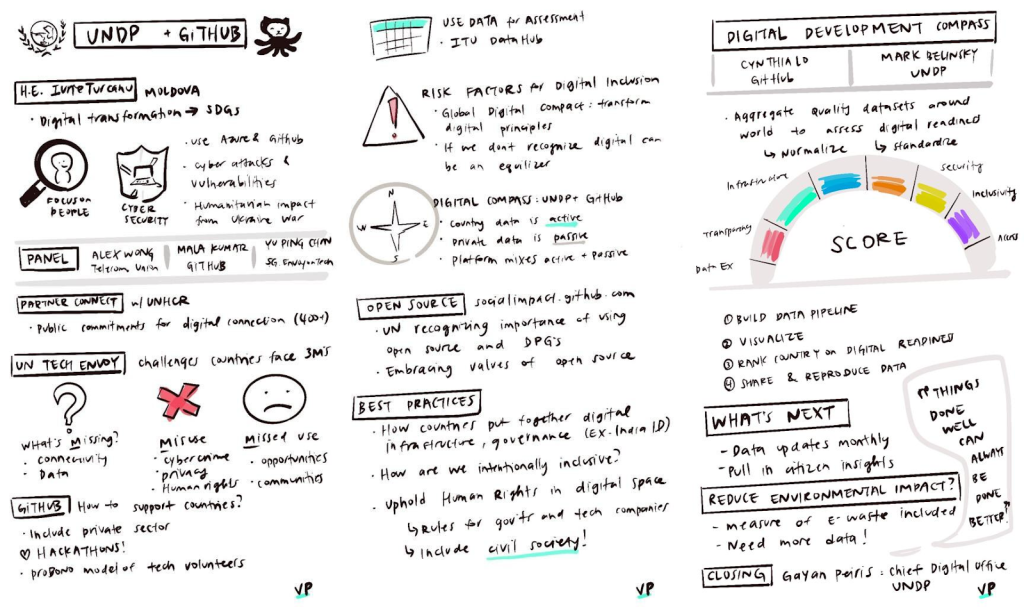 UNDP + GiTHUB
H.E. Iurie Turcanu MOLDOVA
· Digital transformation → SDGs
FOCUS ON
PEOPLE
CYBER
SECURITY
· use Azure & Github
· cyber attacks &
vulnerabilities
· Humanitarian impact
from Ukraine War
PANEL
ALEX WONG
Telecom Union
MALA KUMAR
GITHUB
YU PING CHAN
SG Envoy on Tech
PARTNER CONNECT w/ UNHCR
· Public commitments for digital connection (400+)
UN TECH ENVOY challenges countries face 3M's
WHAT'S Missing?
· connectivity
· Data
Misuse
· cybercrime
· privacy
· Human rights
Missed use
· opportunities
· communities
GITHUB How to support countries?
· Include private sector
♡ HACKATHONS!
· proBONO model of tech volunteers
VP
USE DATA for Assessment
· ITU Data Hub
RISK FACTORS for Digital Inclusion
· Global Digital Compact: transform
digital principles
· If we dont recognize digital can
be an equilizer
N
W
E
S
DIGITAL COMPASS: UNDP + GitHUB
· Country data is active
· Private data is passive
· Platform mixes active + passive
OPEN SOURCE socialimpact.github.com
· UN recognizing importance of using
open source and DPG's
· Embracing values of open source
BEST PRACTICES
· How countries put together digital
infrastructure, governance (Ex. India ID)
· How are we intentionally inclusive?
· Uphold Human Rights in digital space
↳ Rules for gov'ts and tech companies
↳ Include civil society!
VP
DIGITAL DEVELOPMENT COMPASS
CYNTHIA LO
GitHUB
MARK BELINSKY
UNDP
· Aggregate Quality datasets around
world to assess digital readiness
↳ Normalize ↳ Standardize
Data Ex
Transparency
Infrastructure
Security
Inclusivity
Access
SCORE
① BUILD DATA PIPELINE
② VISUALIZE
③ RANK COUNTRY ON DIGITAL READINESS
④ SHARE & REPRODUCE DATA
WHAT'S NEXT
- Data updates monthly
- Pull in citizen insights
REDUCE ENVIRONMENTAL IMPACT?
- measure of e-waste included
- Need more data!
"THINGS
DONE
WELL
CAN
ALWAYS
BE
DONE
BETTER!"
CLOSING Gayan Peiris: Chief Digital Office
UNDP
VP